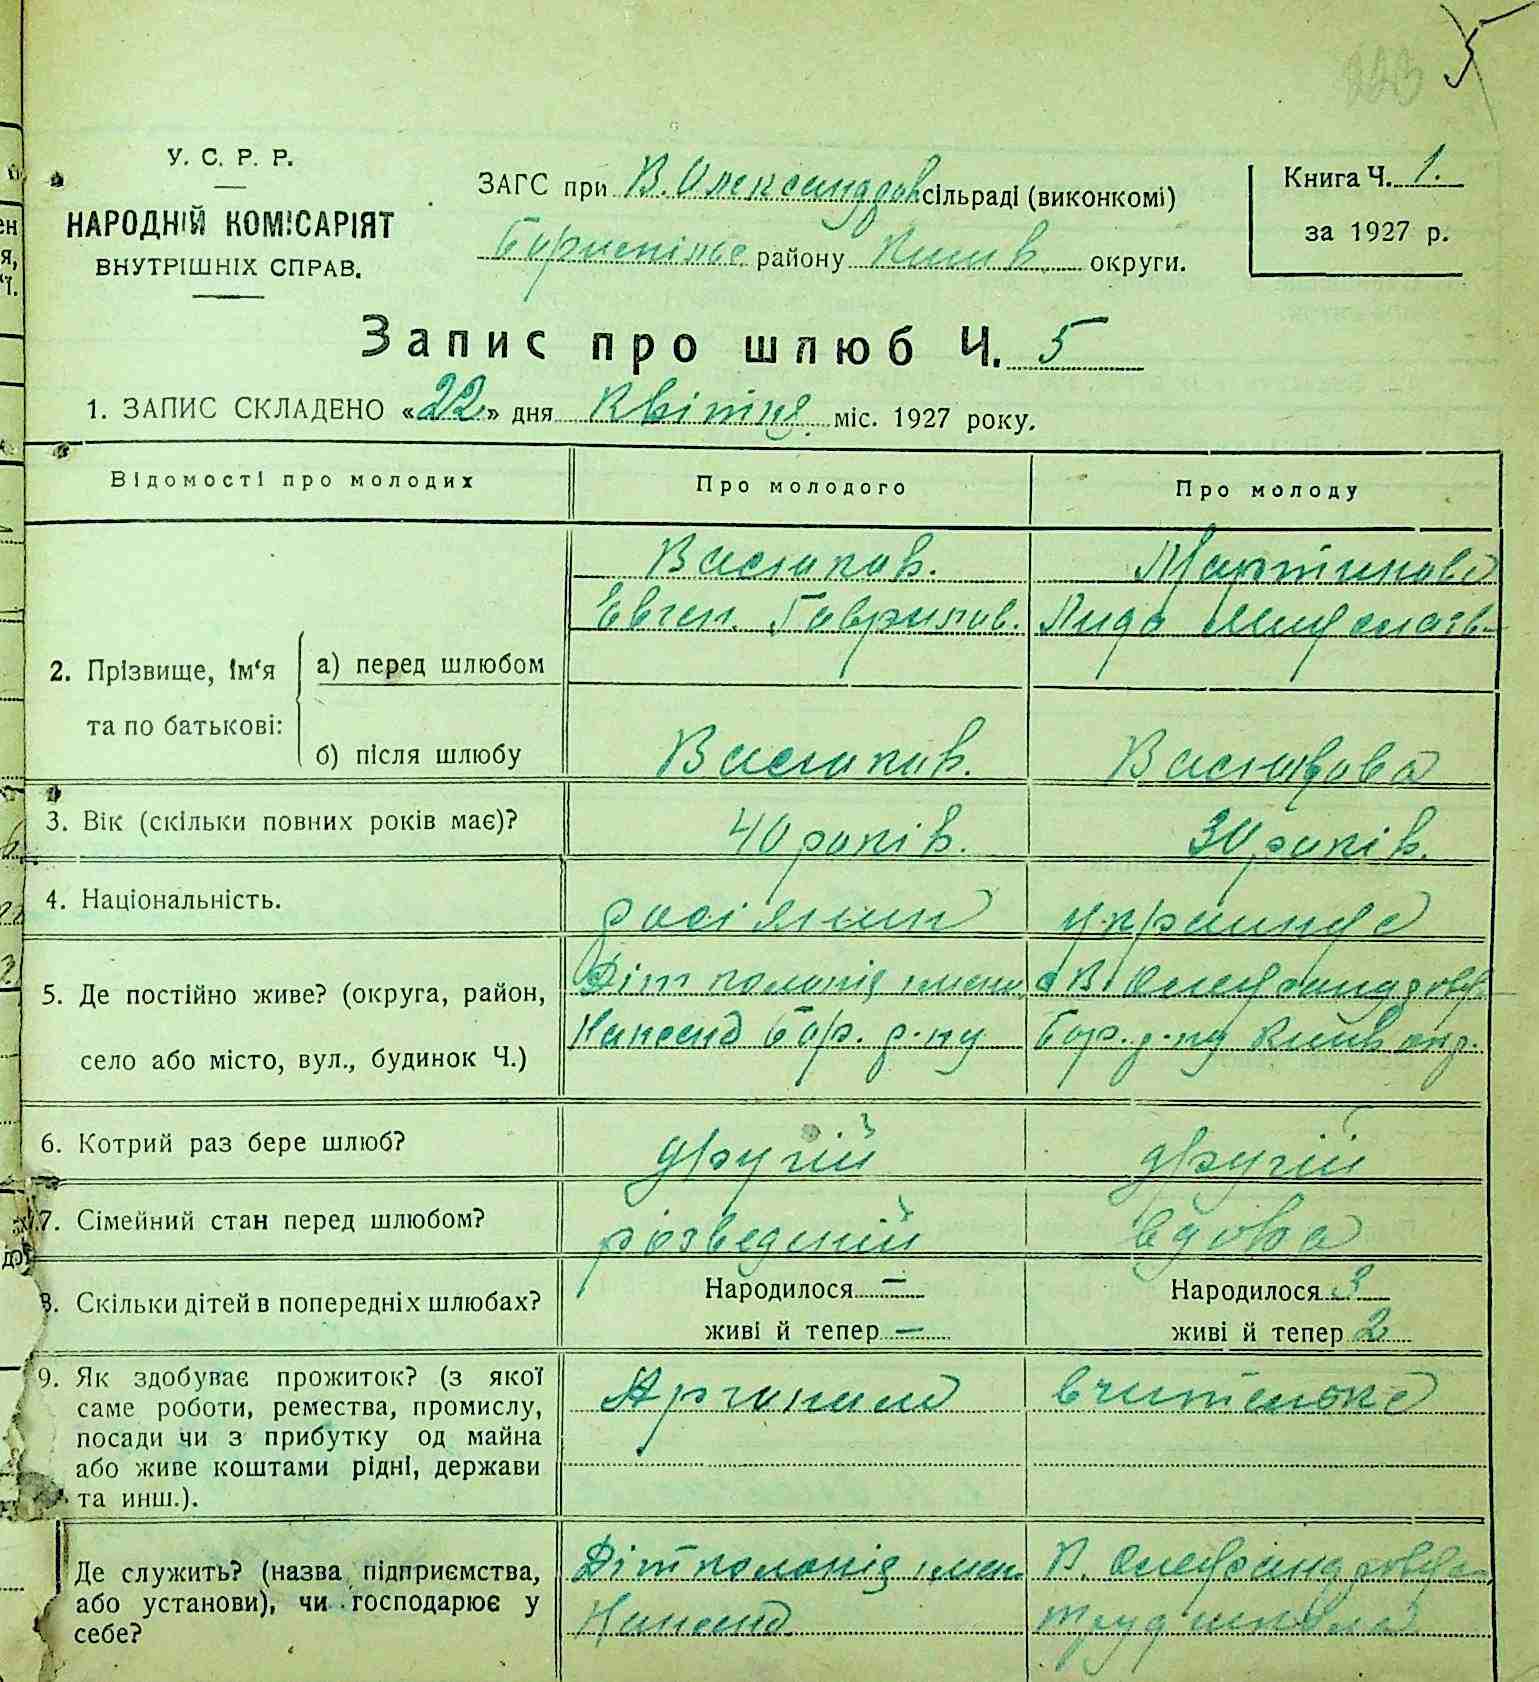 5
223
У. С. Р. Р.
НАРОДНІЙ КОМІСАРІЯТ
ВНУТРІШНІХ СПРАВ.
ЗАГС при В. Олександров сільраді (виконкомі)
Бориспільс району Київ округи.
Книга Ч. 1.
за 1927 р.
Запис про шлюб Ч. 5
1. ЗАПИС СКЛАДЕНО «22» дня Квітня міс. 1927 року.
Відомості про молодих
Про молодого
Про молоду
2. Прізвище, ім'я та по батькові:
а) перед шлюбом
Євген. Гаврилов.
Мартинова
Лида
б) після шлюбу
3. Вік (скільки повних років має)?
40 років.
30 років.
4. Національність.
росіянин
українка
5. Де постійно живе? (округа, район,
село або місто, вул., будинок Ч.)
Діт колонія імени
Бор. р-ну
с В Олександровка
Бор. р-ну Київ окр.
6. Котрий раз бере шлюб?
другий
другий
7. Сімейний стан перед шлюбом?
розведений
вдова
8. Скільки дітей в попередніх шлюбах?
Народилося —
живі й тепер —
Народилося 3
живі й тепер 2
9. Як здобуває прожиток? (з якої
саме роботи, ремества, промислу,
посади чи з прибутку од майна
або живе коштами рідні, держави
та инш.).
вчителька
Де служить? (назва підприємства,
або установи), чи господарює у
себе?
Діт колонія імен
В. Олександровка
труд школа